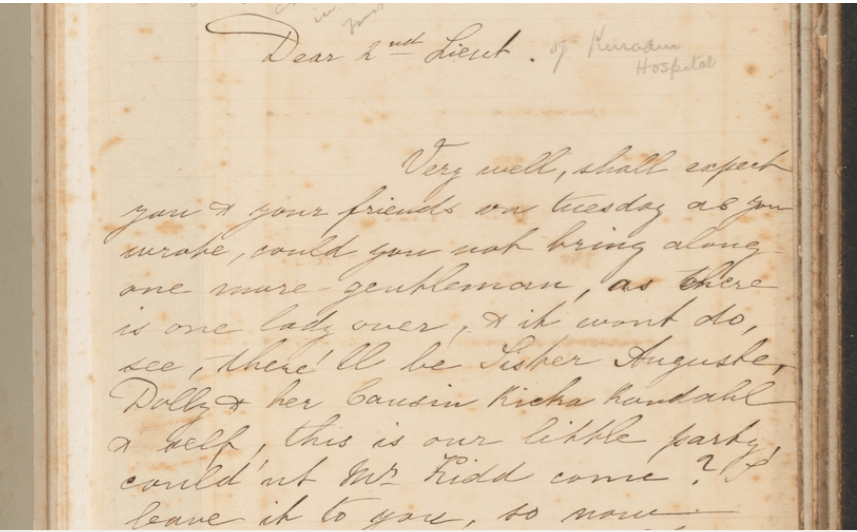 in
Dear 2nd Lieut. of
Hospital
Very well, shall expect
you & your friends on tuesday as you
wrote, could you not bring along
one more gentleman, as there
is one lady over, & it wont do,
see, there'll be Sister Auguste,
Dolly & her Cousin Kicka Kondahl
& self, this is our little party,
could'nt Mr Kidd come? I
leave it to you, so now